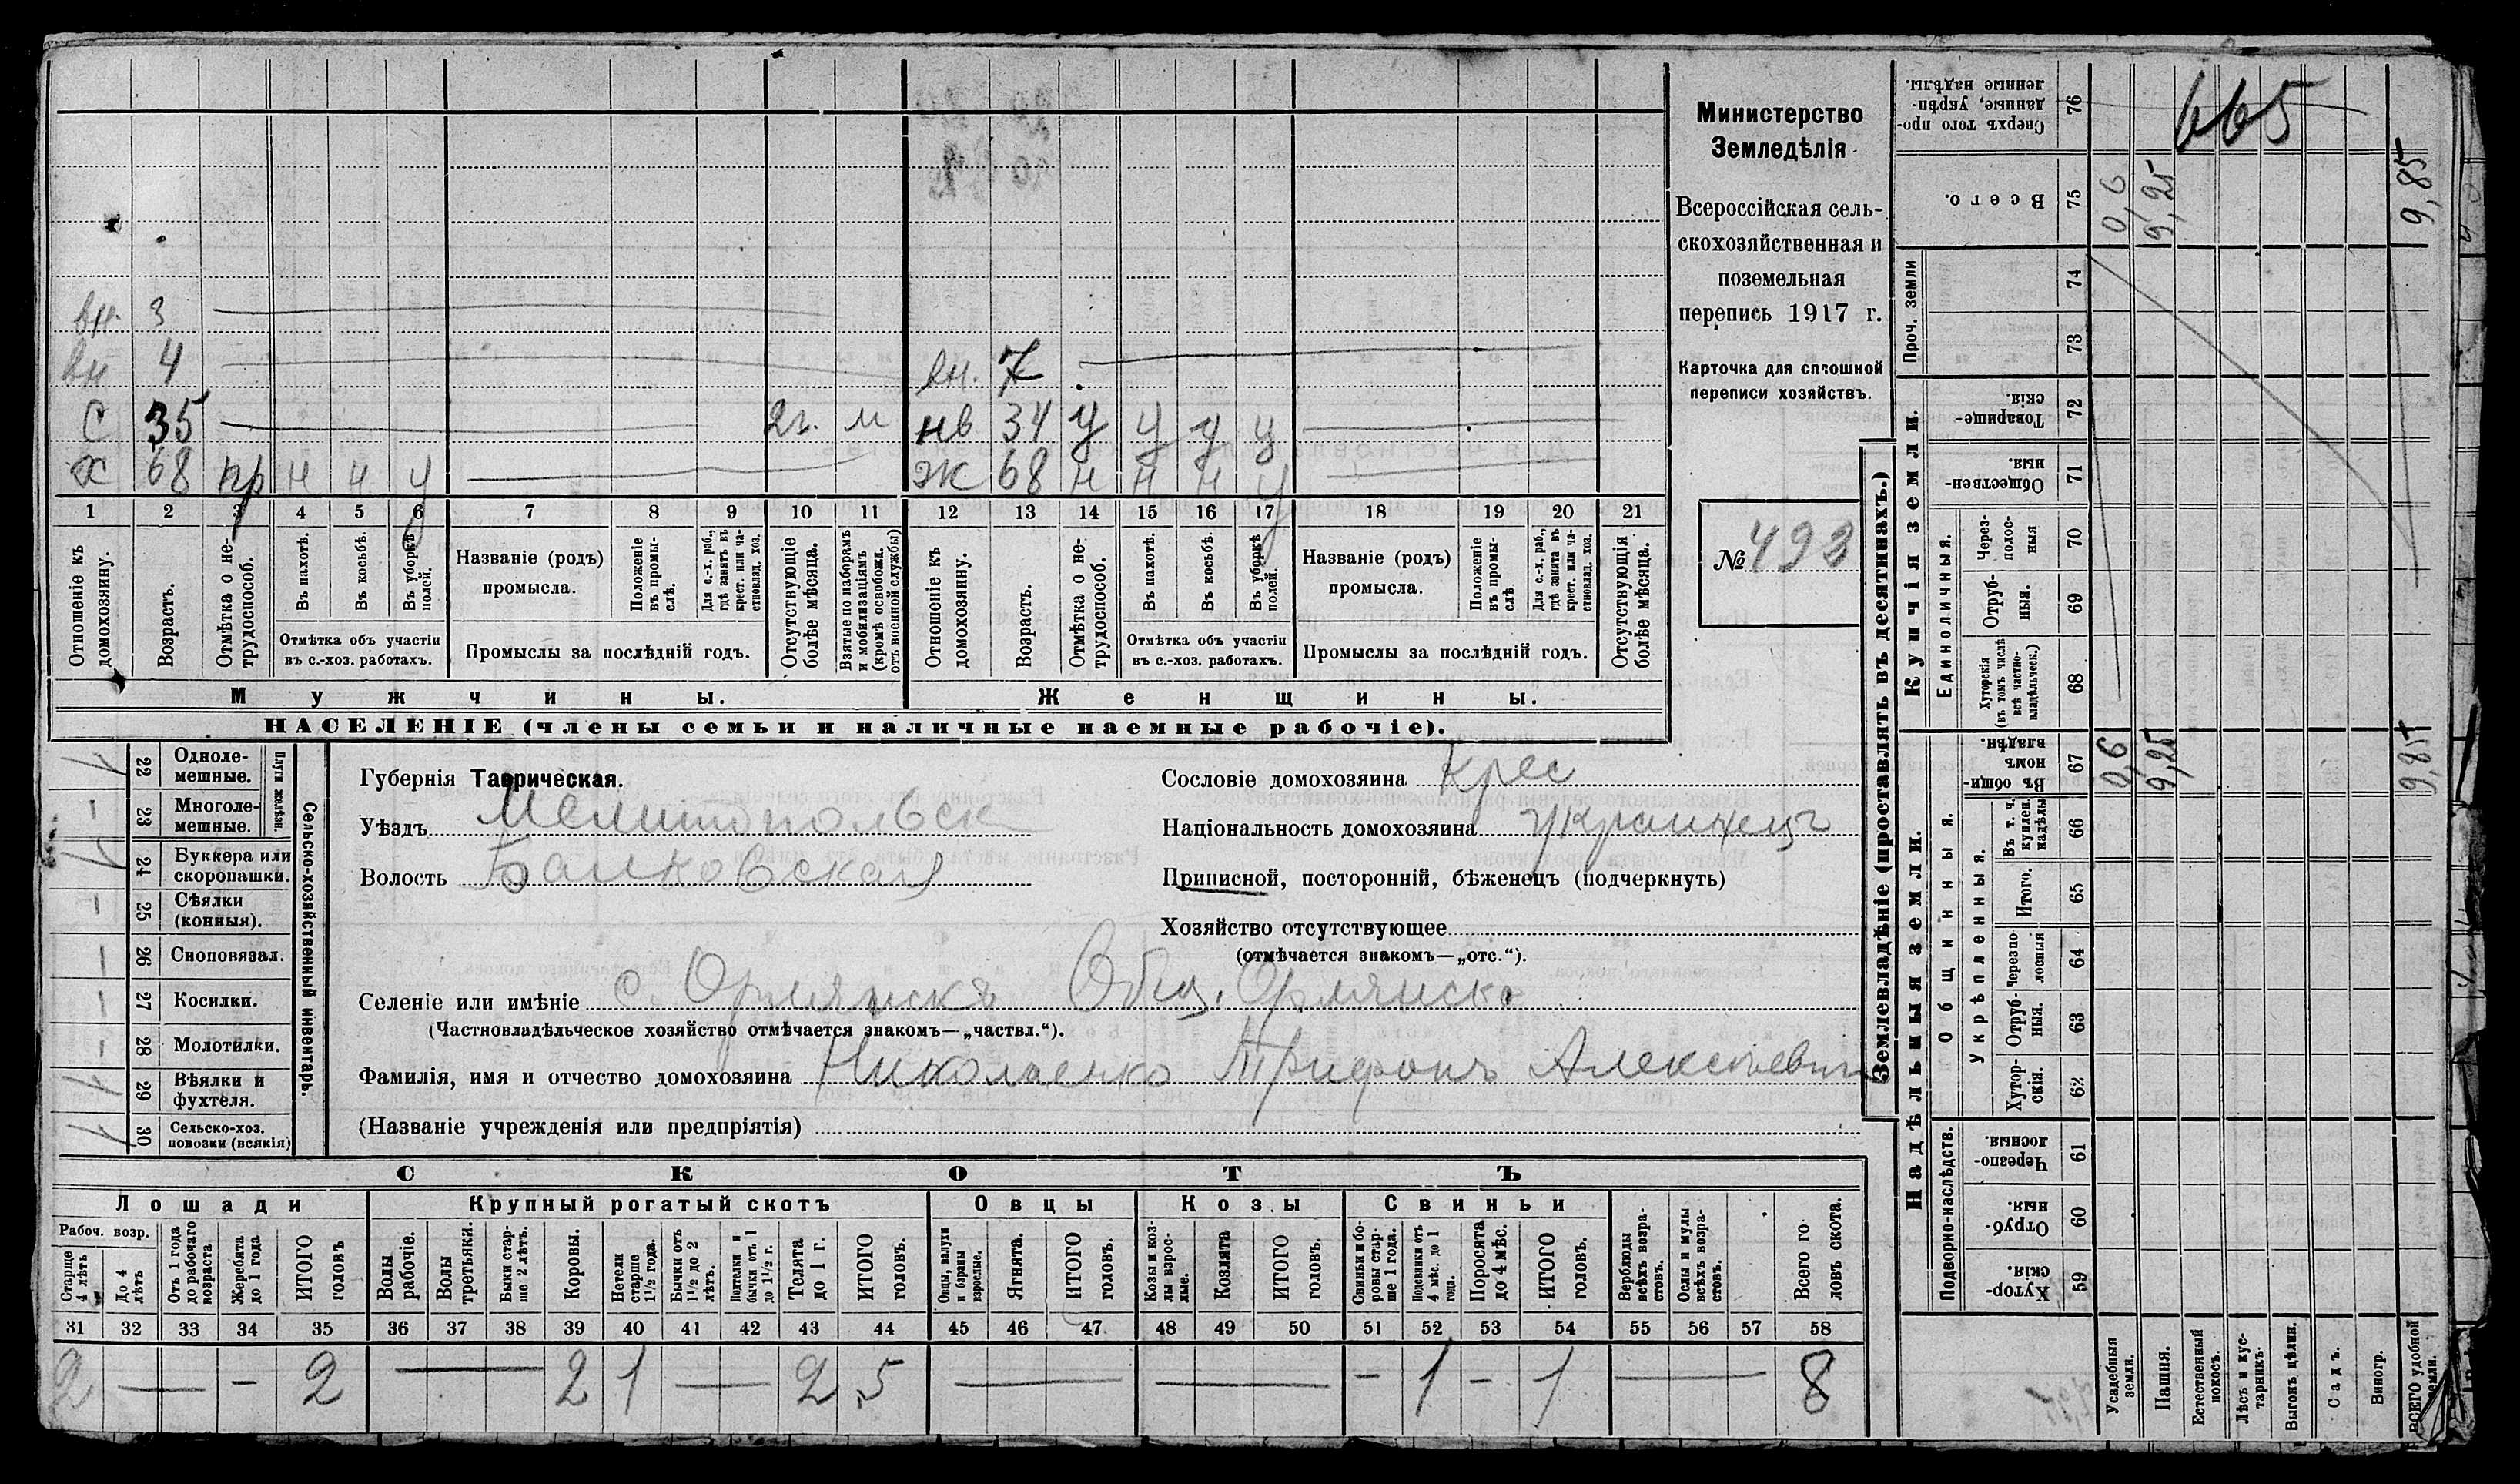 Министерство
Земледѣлія
Всероссійская сель-
скохозяйственная и
поземельная
перепись 1917 г.
Карточка для сплошной
переписи хозяйствъ.
№ 493
665
вн. 3
вн 4 вн. 7
с 35 2г. м нв 34 у у у у
х 68 пр н н у ж 68 н н н у
1 2 3 4 5 6 7 8 9 10 11 12 13 14 15 16 17 18 19 20 21
Отношеніе къ домохозяину.
Возрастъ.
Отмѣтка о не-трудоспособ.
Въ пахотѣ.
Въ косьбѣ.
Въ уборкѣ полей.
Отмѣтка объ участіи
въ с.-хоз. работахъ.
Названіе (родъ)
промысла.
Положеніе въ промы-слѣ.
Для с.-х. раб., гдѣ занятъ въ крест. или ча-стновлад. хоз.
Промыслы за послѣдній годъ.
Отсутствующіе болѣе мѣсяца.
Взятые по наборамъ и мобилизаціямъ (кромѣ освобожд. отъ военной службы)
Отношеніе къ домохозяину.
Возрастъ.
Отмѣтка о не-трудоспособ.
Въ пахотѣ.
Въ косьбѣ.
Въ уборкѣ полей.
Отмѣтка объ участіи
въ с.-хоз. работахъ.
Названіе (родъ)
промысла.
Положеніе въ промы-слѣ
Для с.-х. раб., гдѣ занята въ крест. или ча-стновлад. хоз.
Промыслы за послѣдній годъ.
Отсутствующія болѣе мѣсяца.
Мужчины.
Женщины.
НАСЕЛЕНІЕ (члены семьи и наличные наемные рабочіе).
Сельско-хозяйственный инвентарь.
Плуги желѣзн.
1 22 Одноле-мешные.
– 23 Многоле-мешные.
1 24 Буккера или скоропашки.
– 25 Сѣялки (конныя).
– 26 Сноповязал.
– 27 Косилки.
– 28 Молотилки.
1 29 Вѣялки и фухтеля.
1 30 Сельско-хоз. повозки (всякія)
Губернія Таврическая.
Уѣздъ Мелитопольск
Волость Балковская
Сословіе домохозяина крес
Національность домохозяина украинецъ
Приписной, посторонній, бѣженецъ (подчеркнуть)
Хозяйство отсутствующее
(отмѣчается знакомъ—„отс.“).
Селеніе или имѣніе с. Орлянскъ Общ. Орлянско
(Частновладѣльческое хозяйство отмѣчается знакомъ—„частвл.“).
Фамилія, имя и отчество домохозяина Николаенко Трифонъ Алексѣевич
(Названіе учрежденія или предпріятія)
СКОТЪ
Лошади Крупный рогатый скотъ Овцы Козы Свиньи
Рабоч. возр.
Старше 4 лѣтъ
До 4 лѣтъ
Отъ 1 года до рабочаго возраста
Жеребята до 1 года
ИТОГО головъ
Волы рабочіе.
Волы третьяки.
Быки стар-ше 2 лѣтъ.
Коровы.
Нетели старше 1½ года.
Бычки отъ 1½ до 2 лѣтъ.
Подтелки и бычки отъ 1 до 1½ г.
Телята до 1 г.
ИТОГО головъ.
Овцы, валухи и бараны взрослые.
Ягнята.
ИТОГО головъ.
Козы и коз-лы взрос-лые.
Козлята
ИТОГО головъ.
Свиньи и бо-ровы стар-ше 1 года.
Подсвинки отъ 4 мѣс. до 1 года.
Поросята до 4 мѣс.
ИТОГО головъ.
Верблюды всѣхъ возра-стовъ.
Ослы и мулы всѣхъ возра-стовъ.
Всего го-ловъ скота.
31 32 33 34 35 36 37 38 39 40 41 42 43 44 45 46 47 48 49 50 51 52 53 54 55 56 57 58
2 — – 2 — 2 1 — 2 5 — — – 1 – 1 — 8
Землевладѣніе (проставлять въ десятинахъ.)
Надѣльныя земли.
Купчія земли.
Проч. земли
Подворно-наслѣдств.
Общинныя.
Укрѣпленныя.
Единоличныя.
Хутор-скія. 59
Отруб-ныя. 60
Черезпо-лосныя. 61
Хутор-скія. 62
Отруб-ныя. 63
Черезпо-лосныя 64
Итого. 65
Въ т. ч. куплен. надѣлы 66
Въ общин-номъ владѣн. 67
Хуторскія (въ томъ числѣ всѣ частно-владѣльческ.) 68
Отруб-ныя. 69
Через-полос-ныя 70
Обществен-ныя. 71
Товарище-скія. 72
73
74
Всего. 75
Сверхъ того про-данные, укрѣп-ленные надѣлы. 76
Усадебныя земли. 0,6 0,6
Пашня. 9,25 9,25
Естественный покосъ.
Лѣсъ и кус-тарникъ.
Выгонъ цѣлин.
Садъ.
Виногр.
ВСЕГО удобной земли. 9,85 9,85